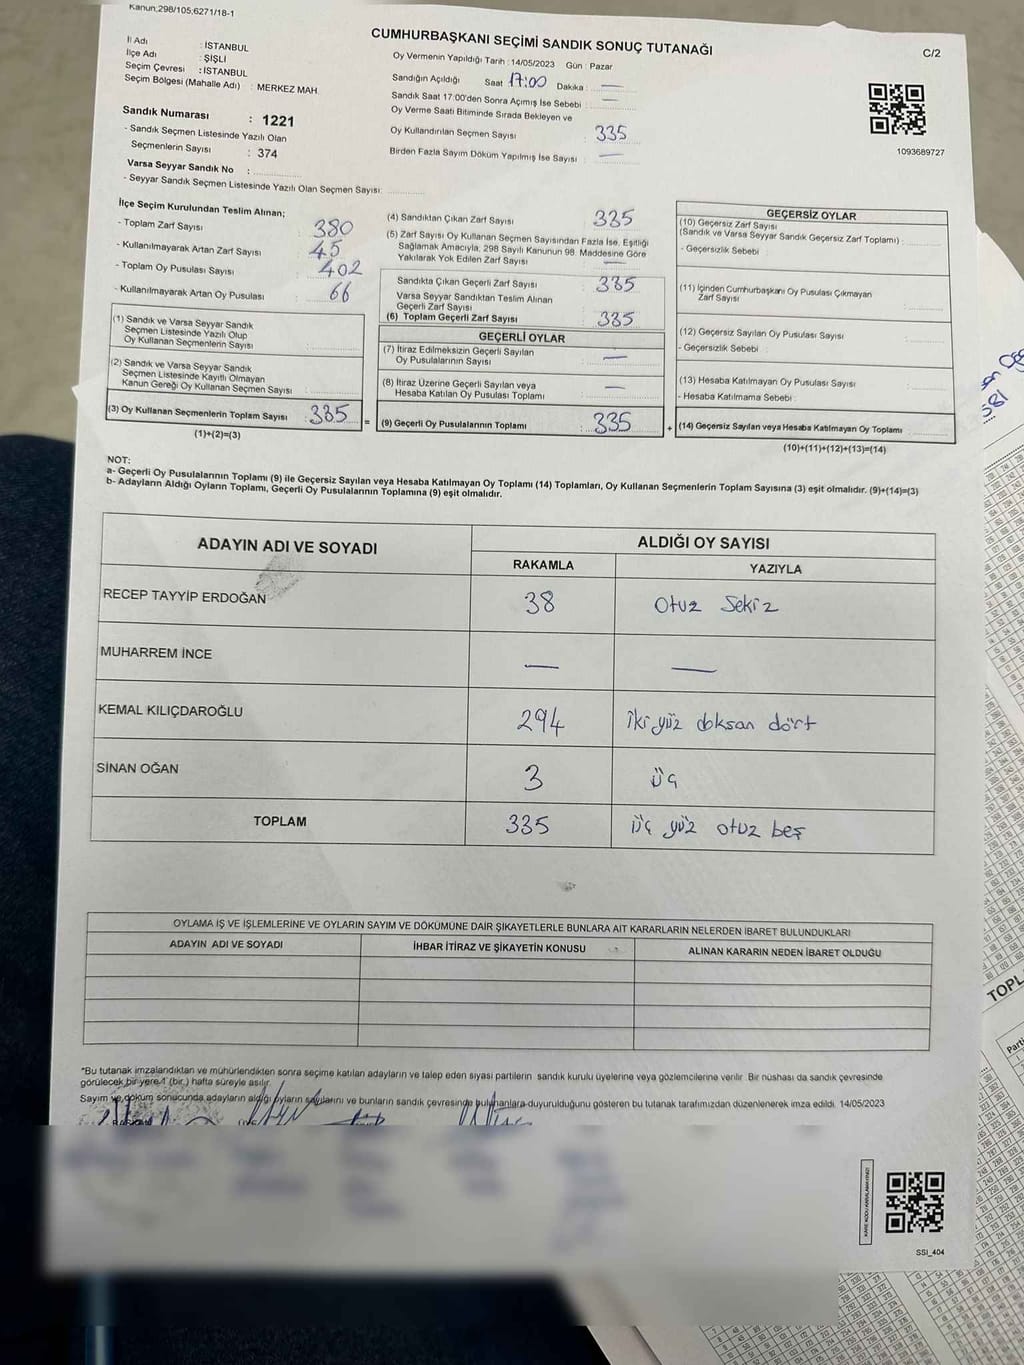 Kanun;298/105;6271/18-1
CUMHURBAŞKANI SEÇİMİ SANDIK SONUÇ TUTANAĞI
C/2
İl Adı : İSTANBUL
İlçe Adı : ŞİŞLİ
Seçim Çevresi : İSTANBUL
Seçim Bölgesi (Mahalle Adı) : MERKEZ MAH.
Sandık Numarası : 1221
- Sandık Seçmen Listesinde Yazılı Olan
Seçmenlerin Sayısı : 374
Varsa Seyyar Sandık No :
- Seyyar Sandık Seçmen Listesinde Yazılı Olan Seçmen Sayısı:
Oy Vermenin Yapıldığı Tarih : 14/05/2023 Gün : Pazar
Sandığın Açıldığı Saat 17:00 Dakika : —
Sandık Saat 17:00'den Sonra Açımış İse Sebebi : —
Oy Verme Saati Bitiminde Sırada Bekleyen ve
Oy Kullandırılan Seçmen Sayısı : 335
Birden Fazla Sayım Döküm Yapılmış İse Sayısı : —
1093689727
İlçe Seçim Kurulundan Teslim Alınan;
- Toplam Zarf Sayısı : 380
- Kullanılmayarak Artan Zarf Sayısı : 45
- Toplam Oy Pusulası Sayısı : 402
- Kullanılmayarak Artan Oy Pusulası : 66
(1) Sandık ve Varsa Seyyar Sandık
Seçmen Listesinde Yazılı Olup
Oy Kullanan Seçmenlerin Sayısı :
(2) Sandık ve Varsa Seyyar Sandık
Seçmen Listesinde Kayıtlı Olmayan
Kanun Gereği Oy Kullanan Seçmen Sayısı :
(3) Oy Kullanan Seçmenlerin Toplam Sayısı : 335 =
(1)+(2)=(3)
(4) Sandıktan Çıkan Zarf Sayısı : 335
(5) Zarf Sayısı Oy Kullanan Seçmen Sayısından Fazla İse, Eşitliği
Sağlamak Amacıyla, 298 Sayılı Kanunun 98. Maddesine Göre
Yakılarak Yok Edilen Zarf Sayısı : —
Sandıkta Çıkan Geçerli Zarf Sayısı : 335
Varsa Seyyar Sandıktan Teslim Alınan
Geçerli Zarf Sayısı :
(6) Toplam Geçerli Zarf Sayısı : 335
GEÇERLİ OYLAR
(7) İtiraz Edilmeksizin Geçerli Sayılan
Oy Pusulalarının Sayısı : —
(8) İtiraz Üzerine Geçerli Sayılan veya
Hesaba Katılan Oy Pusulası Toplamı : —
(9) Geçerli Oy Pusulalarının Toplamı : 335 +
GEÇERSİZ OYLAR
(10) Geçersiz Zarf Sayısı
(Sandık ve Varsa Seyyar Sandık Geçersiz Zarf Toplamı) :
- Geçersizlik Sebebi :
(11) İçinden Cumhurbaşkanı Oy Pusulası Çıkmayan
Zarf Sayısı :
(12) Geçersiz Sayılan Oy Pusulası Sayısı :
- Geçersizlik Sebebi :
(13) Hesaba Katılmayan Oy Pusulası Sayısı :
- Hesaba Katılmama Sebebi :
(14) Geçersiz Sayılan veya Hesaba Katılmayan Oy Toplamı :
(10)+(11)+(12)+(13)=(14)
NOT:
a- Geçerli Oy Pusulalarının Toplamı (9) ile Geçersiz Sayılan veya Hesaba Katılmayan Oy Toplamı (14) Toplamları, Oy Kullanan Seçmenlerin Toplam Sayısına (3) eşit olmalıdır. (9)+(14)=(3)
b- Adayların Aldığı Oyların Toplamı, Geçerli Oy Pusulalarının Toplamına (9) eşit olmalıdır.
ADAYIN ADI VE SOYADI
ALDIĞI OY SAYISI
RAKAMLA YAZIYLA
RECEP TAYYİP ERDOĞAN 38 Otuz Sekiz
MUHARREM İNCE — —
KEMAL KILIÇDAROĞLU 294 İki yüz doksan dört
SİNAN OĞAN 3 üç
TOPLAM 335 üç yüz otuz beş
OYLAMA İŞ VE İŞLEMLERİNE VE OYLARIN SAYIM VE DÖKÜMÜNE DAİR ŞİKAYETLERLE BUNLARA AİT KARARLARIN NELERDEN İBARET BULUNDUKLARI
ADAYIN ADI VE SOYADI İHBAR İTİRAZ VE ŞİKAYETİN KONUSU ALINAN KARARIN NEDEN İBARET OLDUĞU
*Bu tutanak imzalandıktan ve mühürlendikten sonra seçime katılan adayların ve talep eden siyasi partilerin sandık kurulu üyelerine veya gözlemcilerine verilir. Bir nüshası da sandık çevresinde
görülecek bir yere 1 (bir) hafta süreyle asılır.
Sayım ve döküm sonucunda adayların aldığı oyların sayılarını ve bunların sandık çevresinde bulunanlara duyurulduğunu gösteren bu tutanak tarafımızdan düzenlenerek imza edildi. 14/05/2023
SSI_404
TOPL
Parti